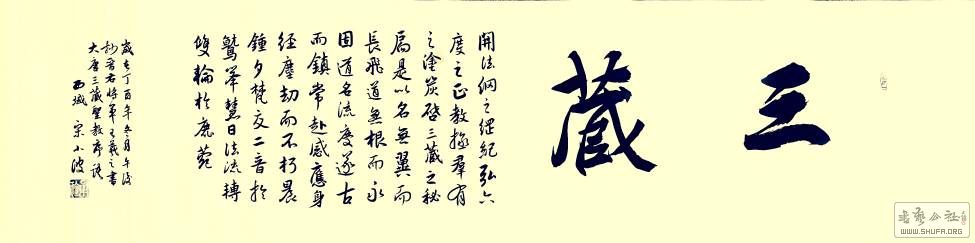 三藏
開法網之綱紀弘六
度之正教拯群有
之塗炭啓三藏之秘
扃是以名無翼而
長飛道無根而永
固道名流慶遂古
而鎮常赴感應身
經塵劫而不朽晨
鍾夕梵交二音於
鷲峯慧日法流轉
雙輪於鹿菀
歲在丁酉年冬月午後
抄晋右將軍王羲之書
大唐三藏聖教序語
西域 宋小波
書藝公社
WWW.SHUFA.ORG